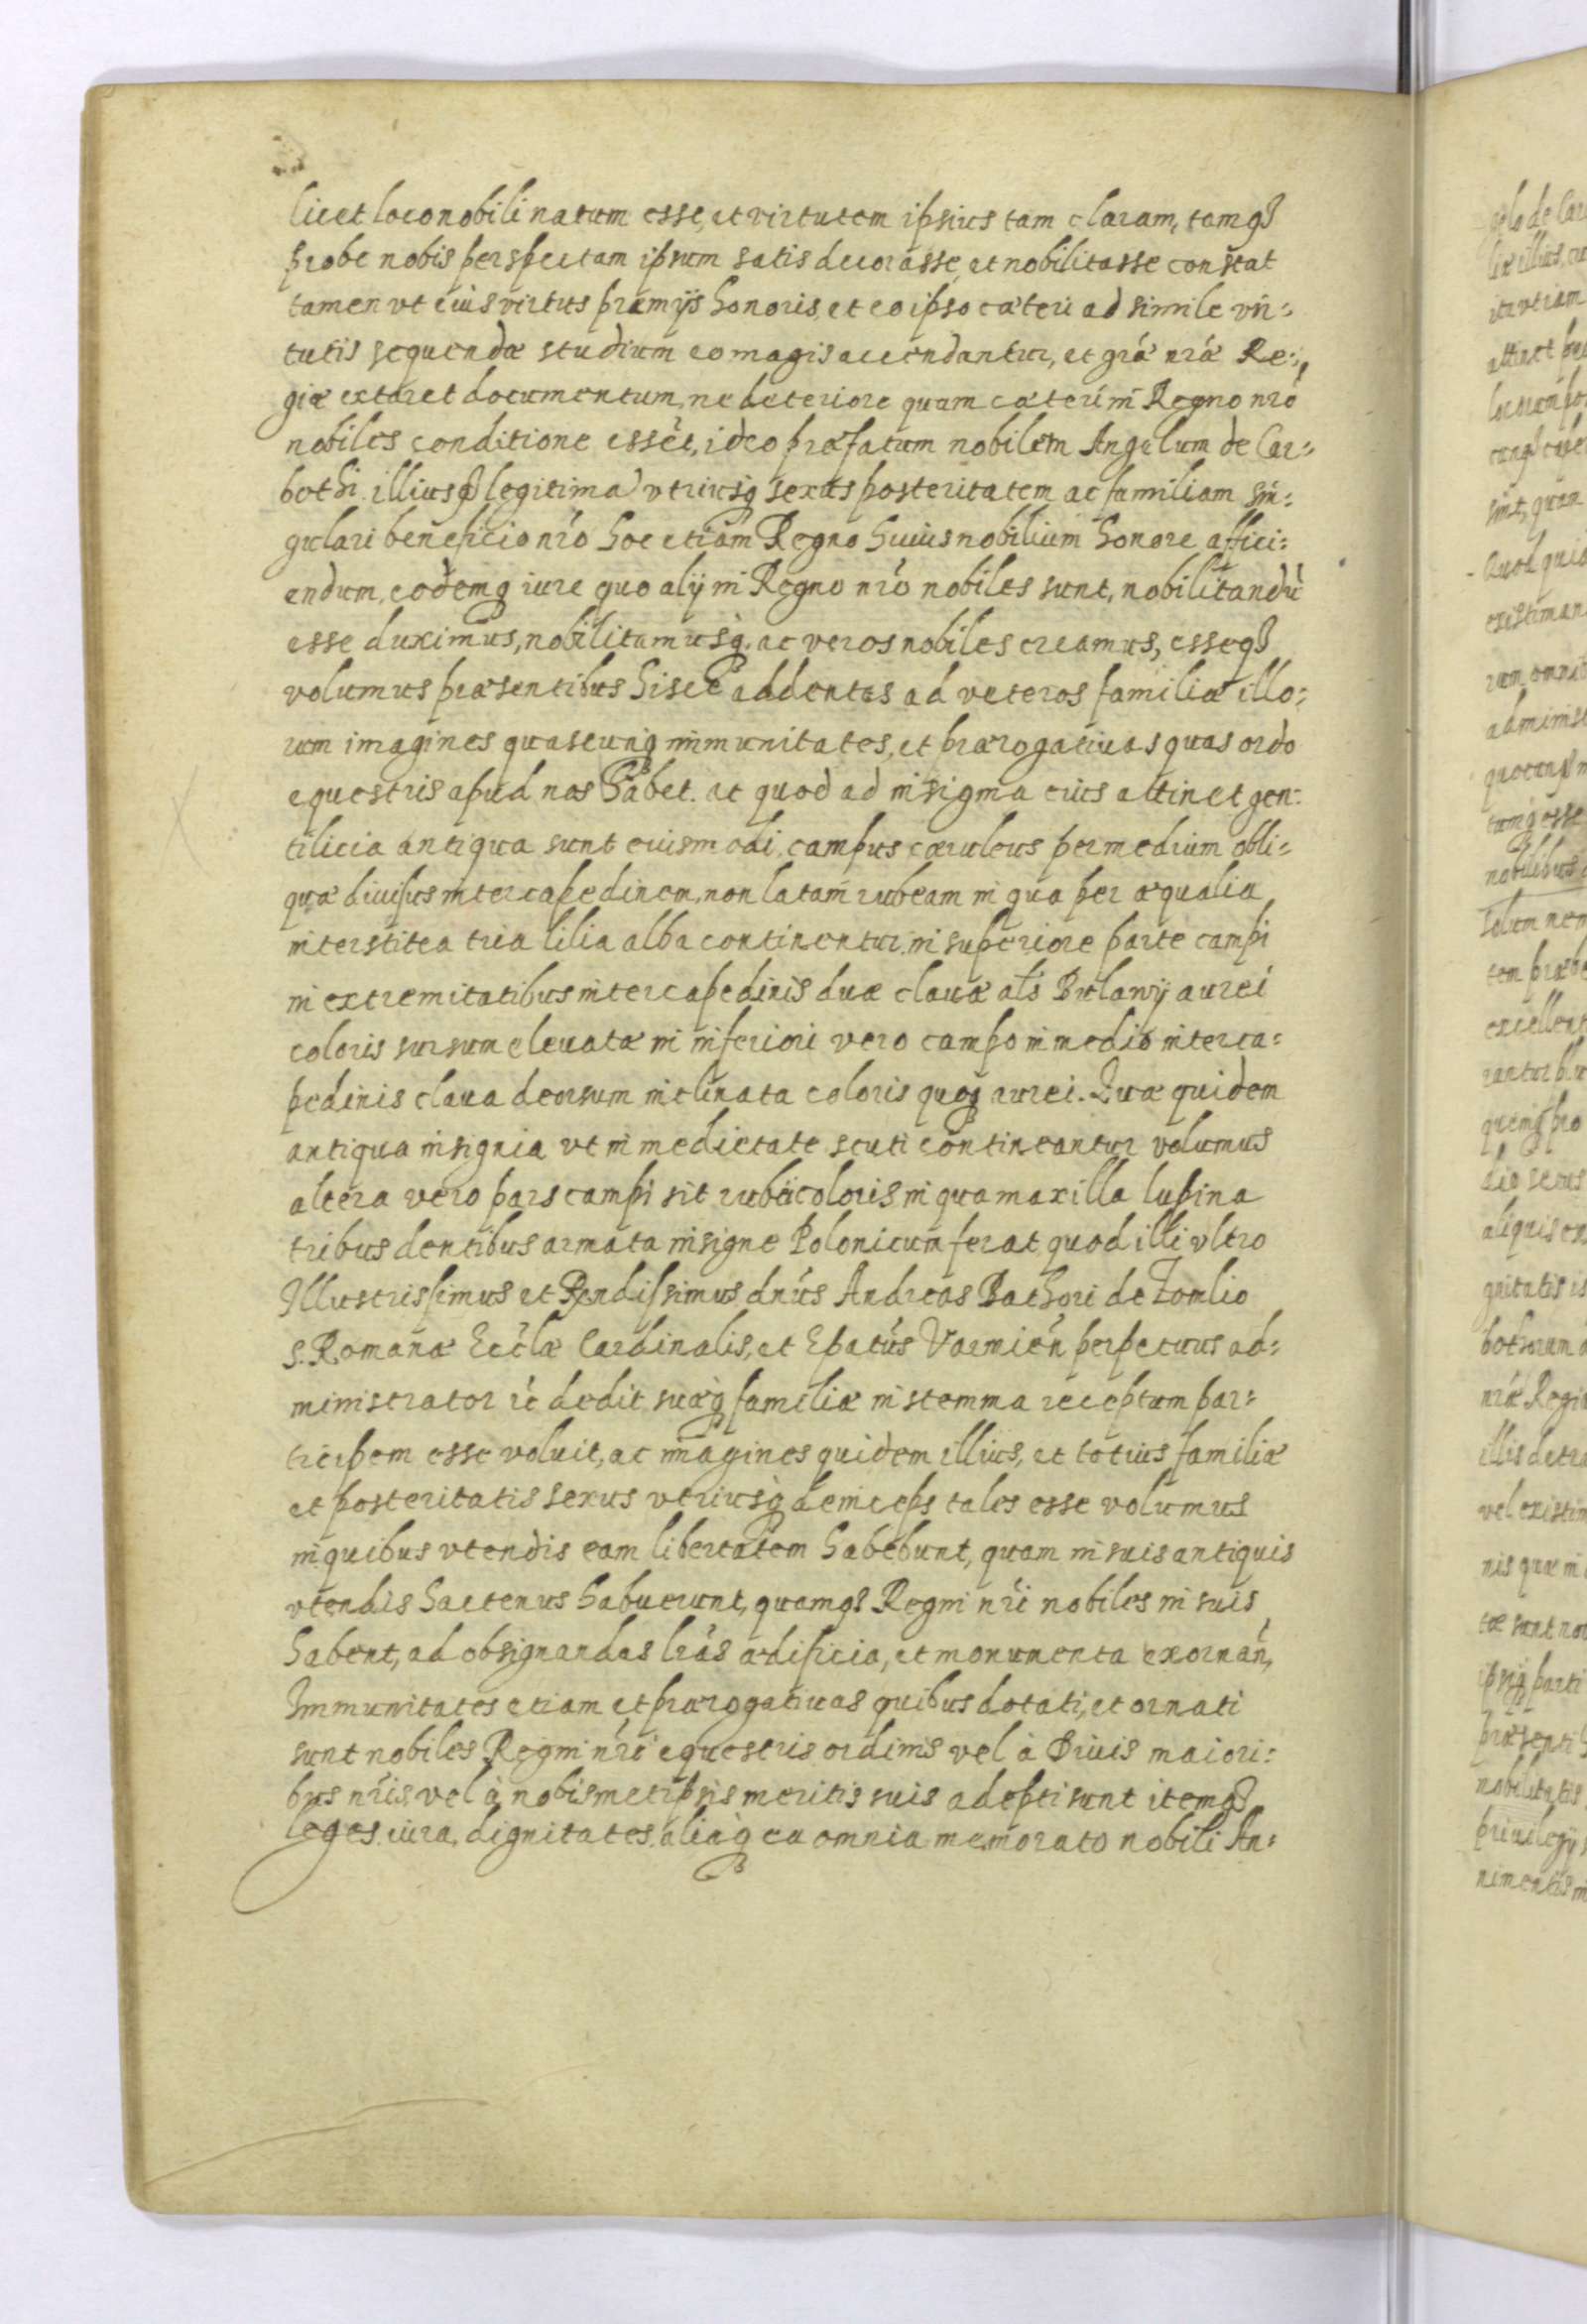 licet loco nobili natum esse, et virtutem ipsius tam claram, tamq3
probe nobis perspectam ipsum satis decorasse, et nobilitasse constat
tamen vt eius virtus præmijs honoris, et eo ipso cæteri ad simile vir:
tutis sequendæ studium eo magis accendantur, et grã nrã Re:
giæ extaret documentum, ne deteriore quam cæteri in Regno nrõ
nobiles conditione essẽt, ideo præfatum nobilem Angelum de Car:
bothi illiusq3 legitimã vtriusq3 sexus posteritatem ac familiam sin:
gulari beneficio nrõ hoc etiam Regno huius nobilium honore affici:
endum, eodemq3 iure quo alij in Regno nrõ nobiles sunt, nobilitandũ
esse duximus, nobilitamusq3 ac veros nobiles creamus, esseq3
volumus præsentibus hisce addentes ad veteros familiæ illo:
rum imagines quascunq3 immunitates, et prærogatiuas quas ordo
equestris apud nos habet. ac quod ad insignia eius attinet gen:
tilicia antiqua sunt eiusmodi, campus cæruleus per medium obli:
quæ diuisus intercapedinem, non latam rubeam in qua per æqualia
interstitea tria lilia alba continentur. in superiore parte campi
in extremitatibus intercapedinis duæ clauæ als̃ Bulawij aurei
coloris sursum eleuatæ in inferiori vero campo in medio interca:
pedinis claua deorsum inclinata coloris quoq3 aurei. Quæ quidem
antiqua insignia vt in medietate scuti contineantur volumus
altera vero pars campi sit rubei coloris in qua maxilla lupina
tribus dentibus armata insigne Polonicum ferat, quod illi vltro
Illustrissimus et Rendissimus dnũs Andreas Bathori de Zomlio
S. Romanæ Ecclæ Cardinalis, et Epatus Varmieñ perpetuus ad:
ministrator dedit, suæq3 familiæ in stemma receptum par:
ticipem esse voluit, ac imagines quidem illius, et totius familiæ
et posteritatis sexus vtriusq3 deinceps tales esse volumus
in quibus vtendis eam libertatem habebunt, quam in suis antiquis
vtendis hactenus habuerunt, quamq3 Regni nrĩ nobiles in suis
habent, ad obsignandas lrãs ædificia, et monumenta exornañ,
Immunitates etiam et prærogatiuas quibus dotati, et ornati
sunt nobiles Regni nrĩ equestris ordinis vel à Diuis maiori:
bus nrĩs, vel à nobismetipsis meritis suis adepti sunt itemq3
leges, iura, dignitates, aliaq3 ea omnia memorato nobili An: